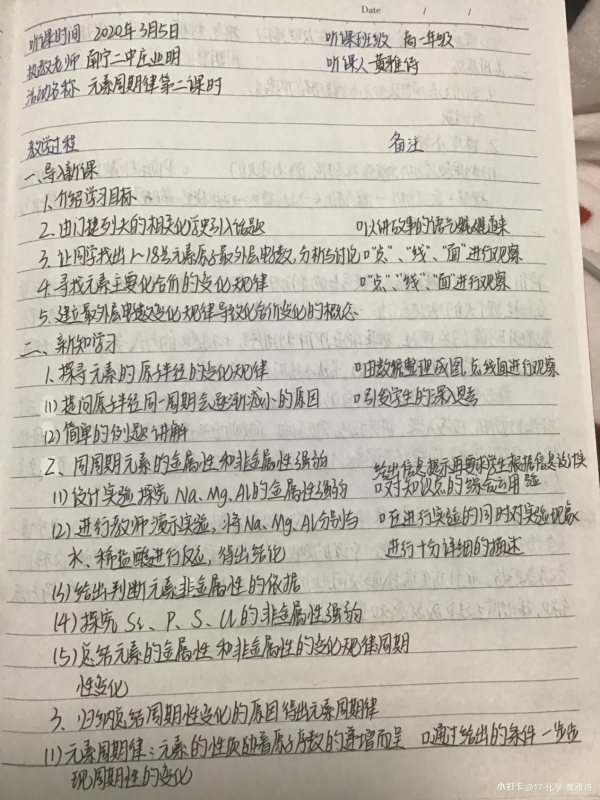 Date / /
听课时间 2020年3月5日 听课班级 高一年级
执教老师 南宁二中庄业明 听课人 黄雅诗
活动名称 元素周期律第二课时
教学过程 备注
一、导入新课
1. 介绍学习目标
2. 由门捷列夫的相关化学史引入话题 以讲故事的语气娓娓道来
3. 让同学找出1~18号元素原子最外层电子数,分析与讨论 “点”、“线”、“面”进行观察
4. 寻找元素主要化合价的变化规律 “点”、“线”、“面”进行观察
5. 建立最外层电子数变化规律导致化合价变化的概念
二、新知学习
1. 探寻元素的原子半径的变化规律 由数据整理成图,点线面进行观察
(1) 提问原子半径同一周期会逐渐减小的原因 引发学生的深入思考
(2) 简单的例题讲解
2、同周期元素的金属性和非金属性强弱 给出信息提示再要求学生根据信息设计实
(1) 设计实验探究Na、Mg、Al的金属性强弱 对知识点的综合运用 验
(2) 进行教师演示实验,将Na、Mg、Al分别与 在进行实验的同时对实验现象
水、稀盐酸进行反应,得出结论 进行十分详细的描述
(3) 给出判断元素非金属性的依据
(4) 探究Si、P、S、Cl的非金属性强弱
(5) 总结元素的金属性和非金属性的变化规律周期
性变化
3、归纳总结周期性变化的原因得出元素周期律
(1) 元素周期律:元素的性质随着原子序数的递增而呈 通过给出的条件一步步
现周期性的变化
小打卡 @17-化学-黄雅诗